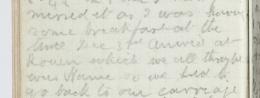 missed it as I was having
some breakfast at the
time Dec 3rd arrived at
Rouen which we all thought
was Havre so we had to
go back to our carriage